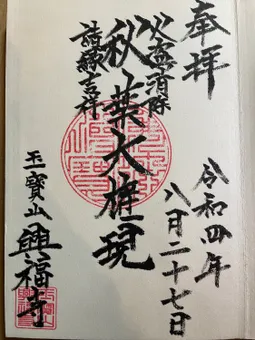 奉拝
令和四年
八月二十七日
火盗消除
諸縁吉祥
秋葉大権現
玉寶山 興福寺